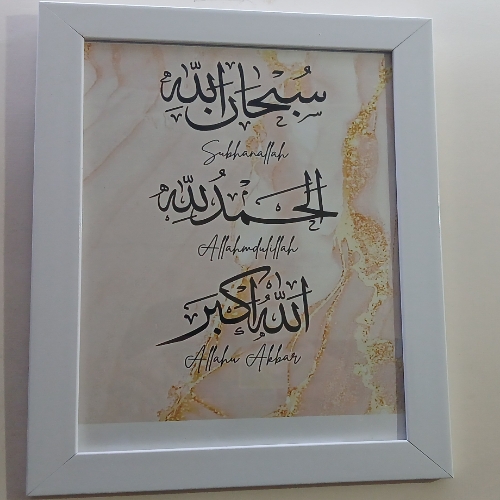 سُبْحَانَ اللّٰه
Subhanallah
الْحَمْدُ لِلّٰه
Allahmdulillah
اللّٰهُ أَكْبَر
Allahu Akbar